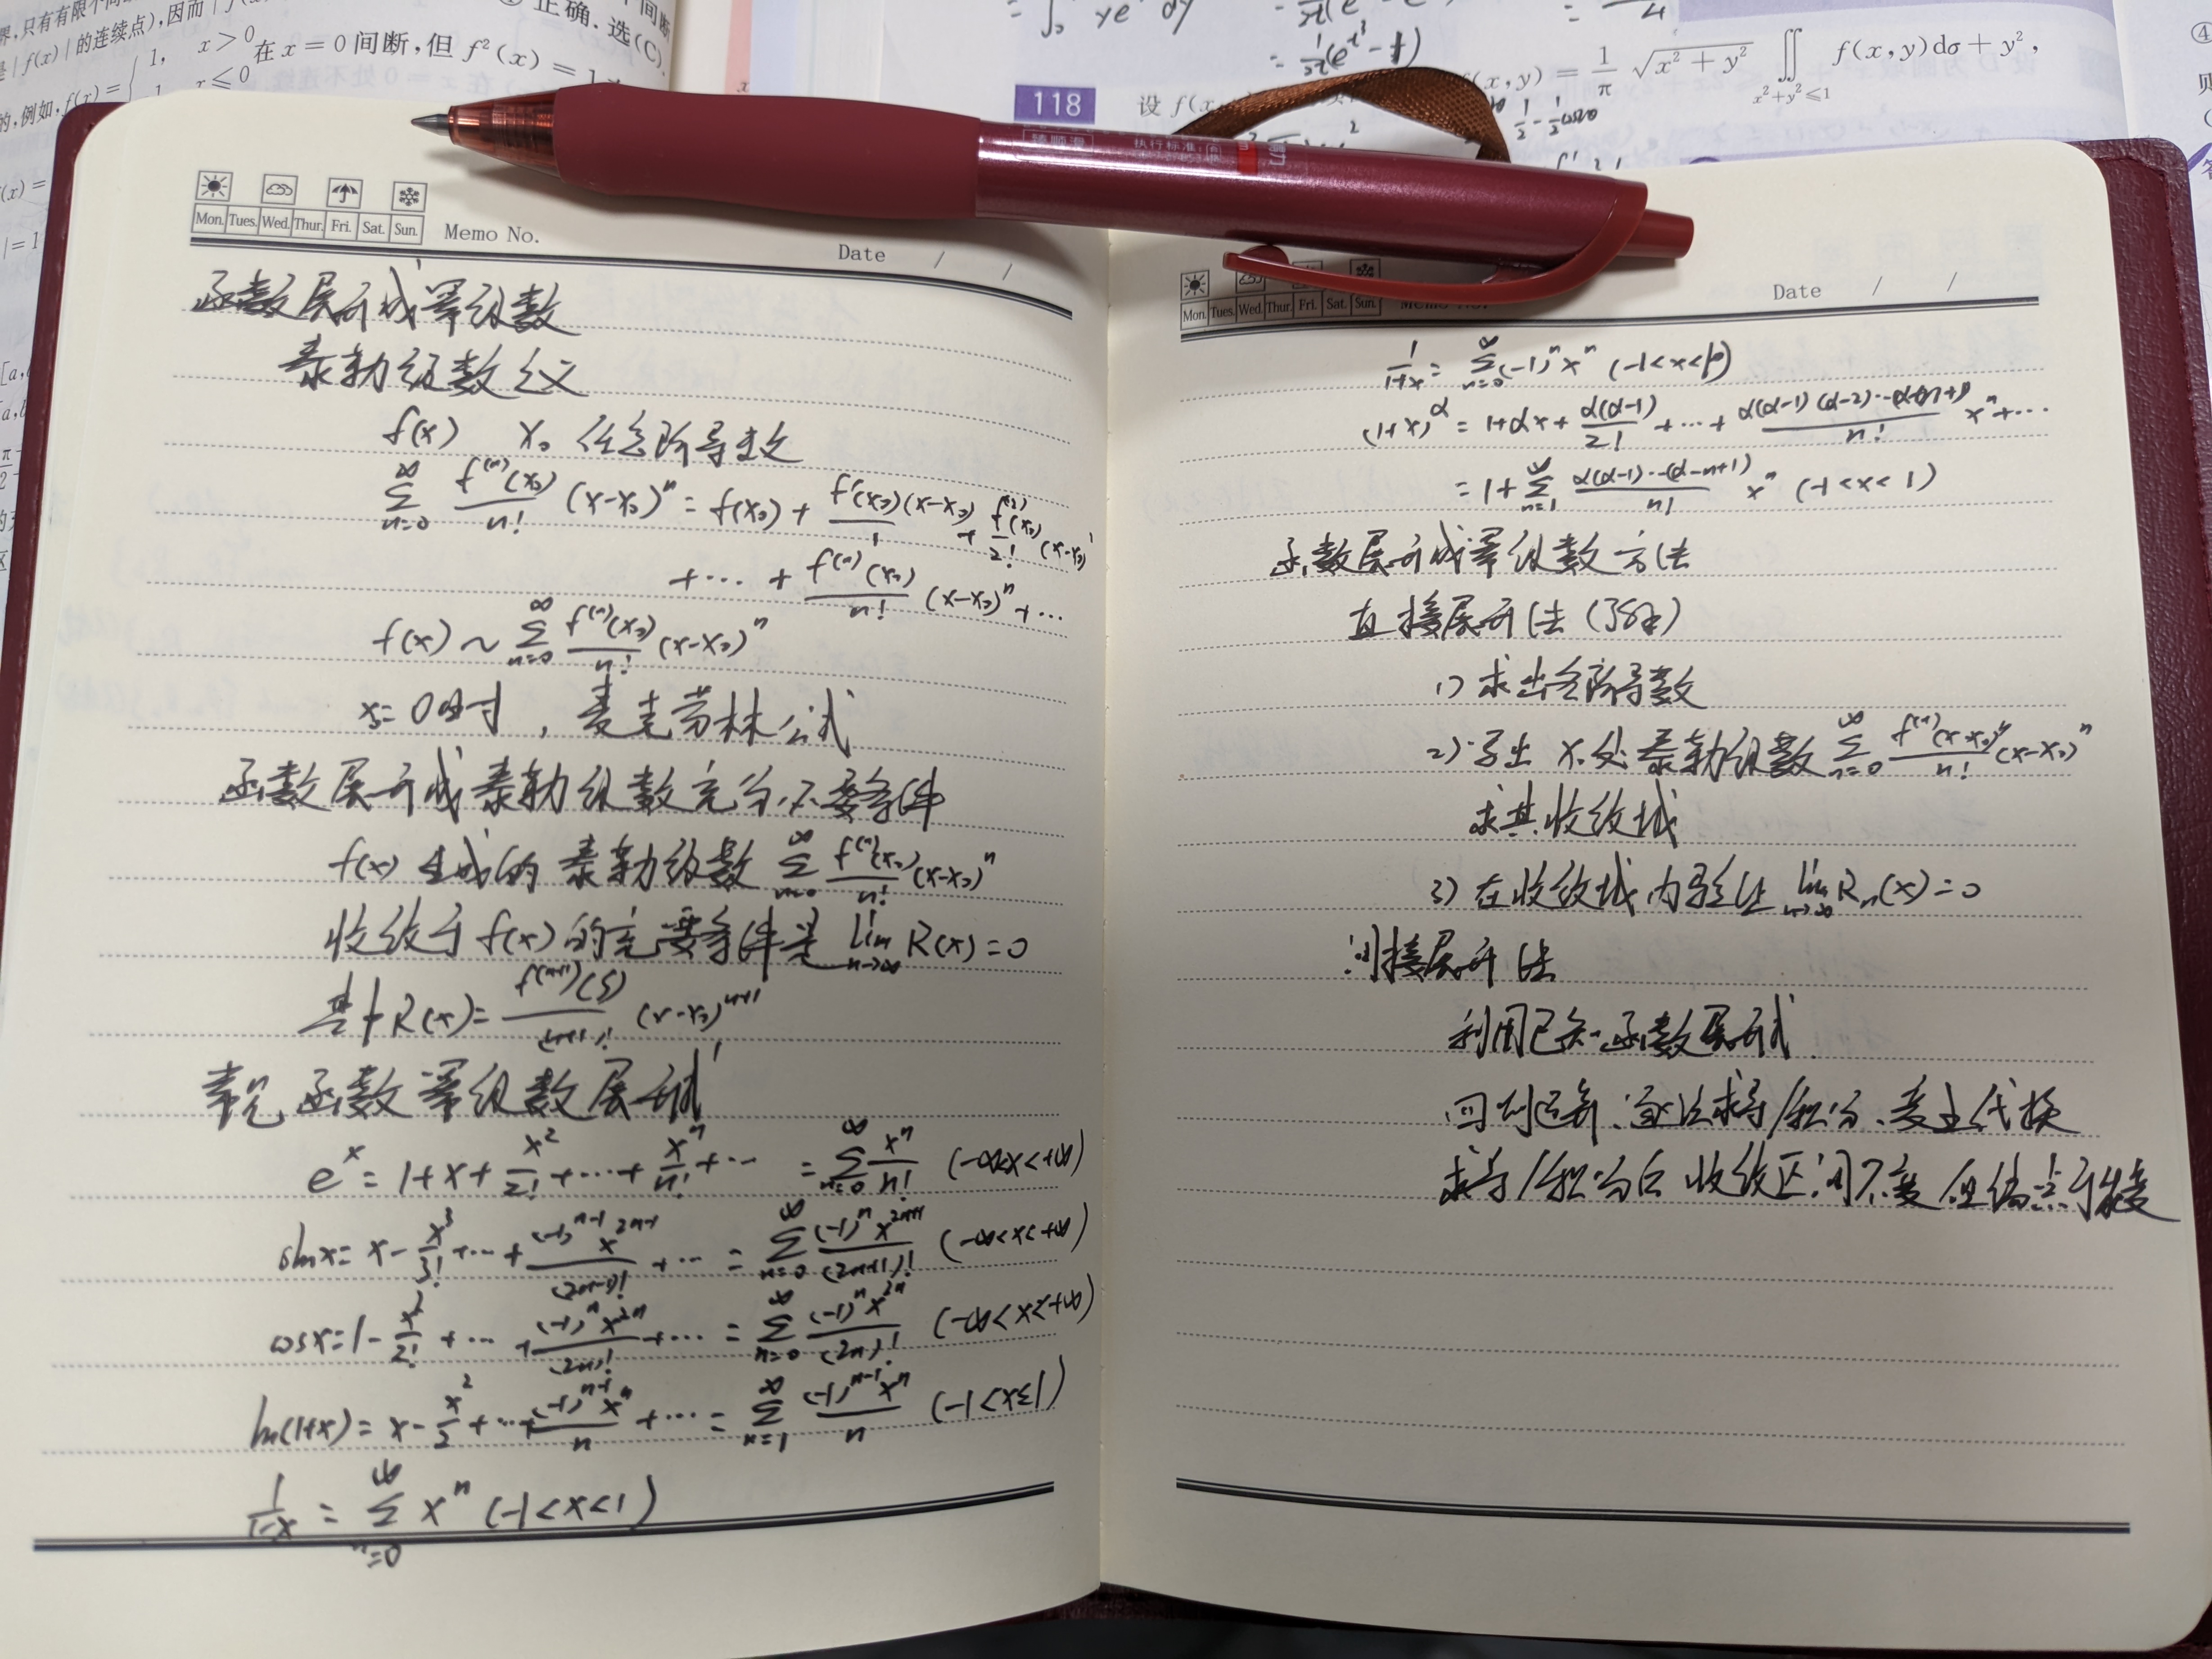 界,只有有限个间断
是|f(x)|的连续点),因而
的,例如,f(x)={1, x>0
x≤0
在x=0间断,但f²(x)=1
正确.选(C).
118
设f(x,
(x,y)=1/π √(x²+y²) ∬_{x²+y²≤1} f(x,y)dσ+y²,
Mon. Tues. Wed. Thur. Fri. Sat. Sun.
Memo No.
Date / /
函数展开成幂级数
泰勒级数定义
f(x) x₀ 任意阶导数
∑_{n=0}^{∞} f^(n)(x₀)/n! (x-x₀)ⁿ = f(x₀) + f'(x₀)(x-x₀)/1 + f^(2)(x₀)/2! (x-x₀)
+ ··· + f^(n)(x₀)/n! (x-x₀)ⁿ + ···
f(x) ~ ∑_{n=0}^{∞} f^(n)(x₀)/n! (x-x₀)ⁿ
x₀=0时,麦克劳林公式
函数展开成泰勒级数充分必要条件
f(x)生成的泰勒级数 ∑_{n=0}^{∞} f^(n)(x₀)/n! (x-x₀)ⁿ
收敛于f(x)的充要条件是 lim_{n→∞} R(x)=0
其中R(x)= f^(n+1)(ξ)/(n+1)! (x-x₀)^{n+1}
常见函数幂级数展开式
e^x = 1+x+x²/2!+···+xⁿ/n!+··· = ∑_{n=0}^{∞} xⁿ/n! (-∞<x<+∞)
sinx = x - x³/3! + ··· + (-1)^{n-1}x^{2n-1}/(2n-1)! + ··· = ∑_{n=0}^{∞} (-1)ⁿx^{2n+1}/(2n+1)! (-∞<x<+∞)
cosx = 1 - x²/2! + ··· + (-1)ⁿx^{2n}/(2n)! + ··· = ∑_{n=0}^{∞} (-1)ⁿx^{2n}/(2n)! (-∞<x<+∞)
ln(1+x) = x - x²/2 + ··· + (-1)^{n-1}xⁿ/n + ··· = ∑_{n=1}^{∞} (-1)^{n-1}xⁿ/n (-1<x≤1)
1/(1-x) = ∑_{n=0}^{∞} xⁿ (-1<x<1)
Mon. Tues. Wed. Thur. Fri. Sat. Sun.
Date / /
1/(1+x) = ∑_{n=0}^{∞} (-1)ⁿxⁿ (-1<x<1)
(1+x)^α = 1+αx+α(α-1)/2!+···+α(α-1)(α-2)···(α-n+1)/n! xⁿ+···
= 1+∑_{n=1}^{∞} α(α-1)···(α-n+1)/n! xⁿ (-1<x<1)
函数展开成幂级数方法
直接展开法
1) 求出各阶导数
2) 写出x₀处泰勒级数 ∑_{n=0}^{∞} f^(n)(x₀)/n! (x-x₀)ⁿ
求其收敛域
3) 在收敛域内验证 lim_{n→∞} Rₙ(x)=0
间接展开法
利用已知函数展开式
四则运算、逐次求导/积分、变量代换
求导/积分后收敛区间不变 但端点可能变